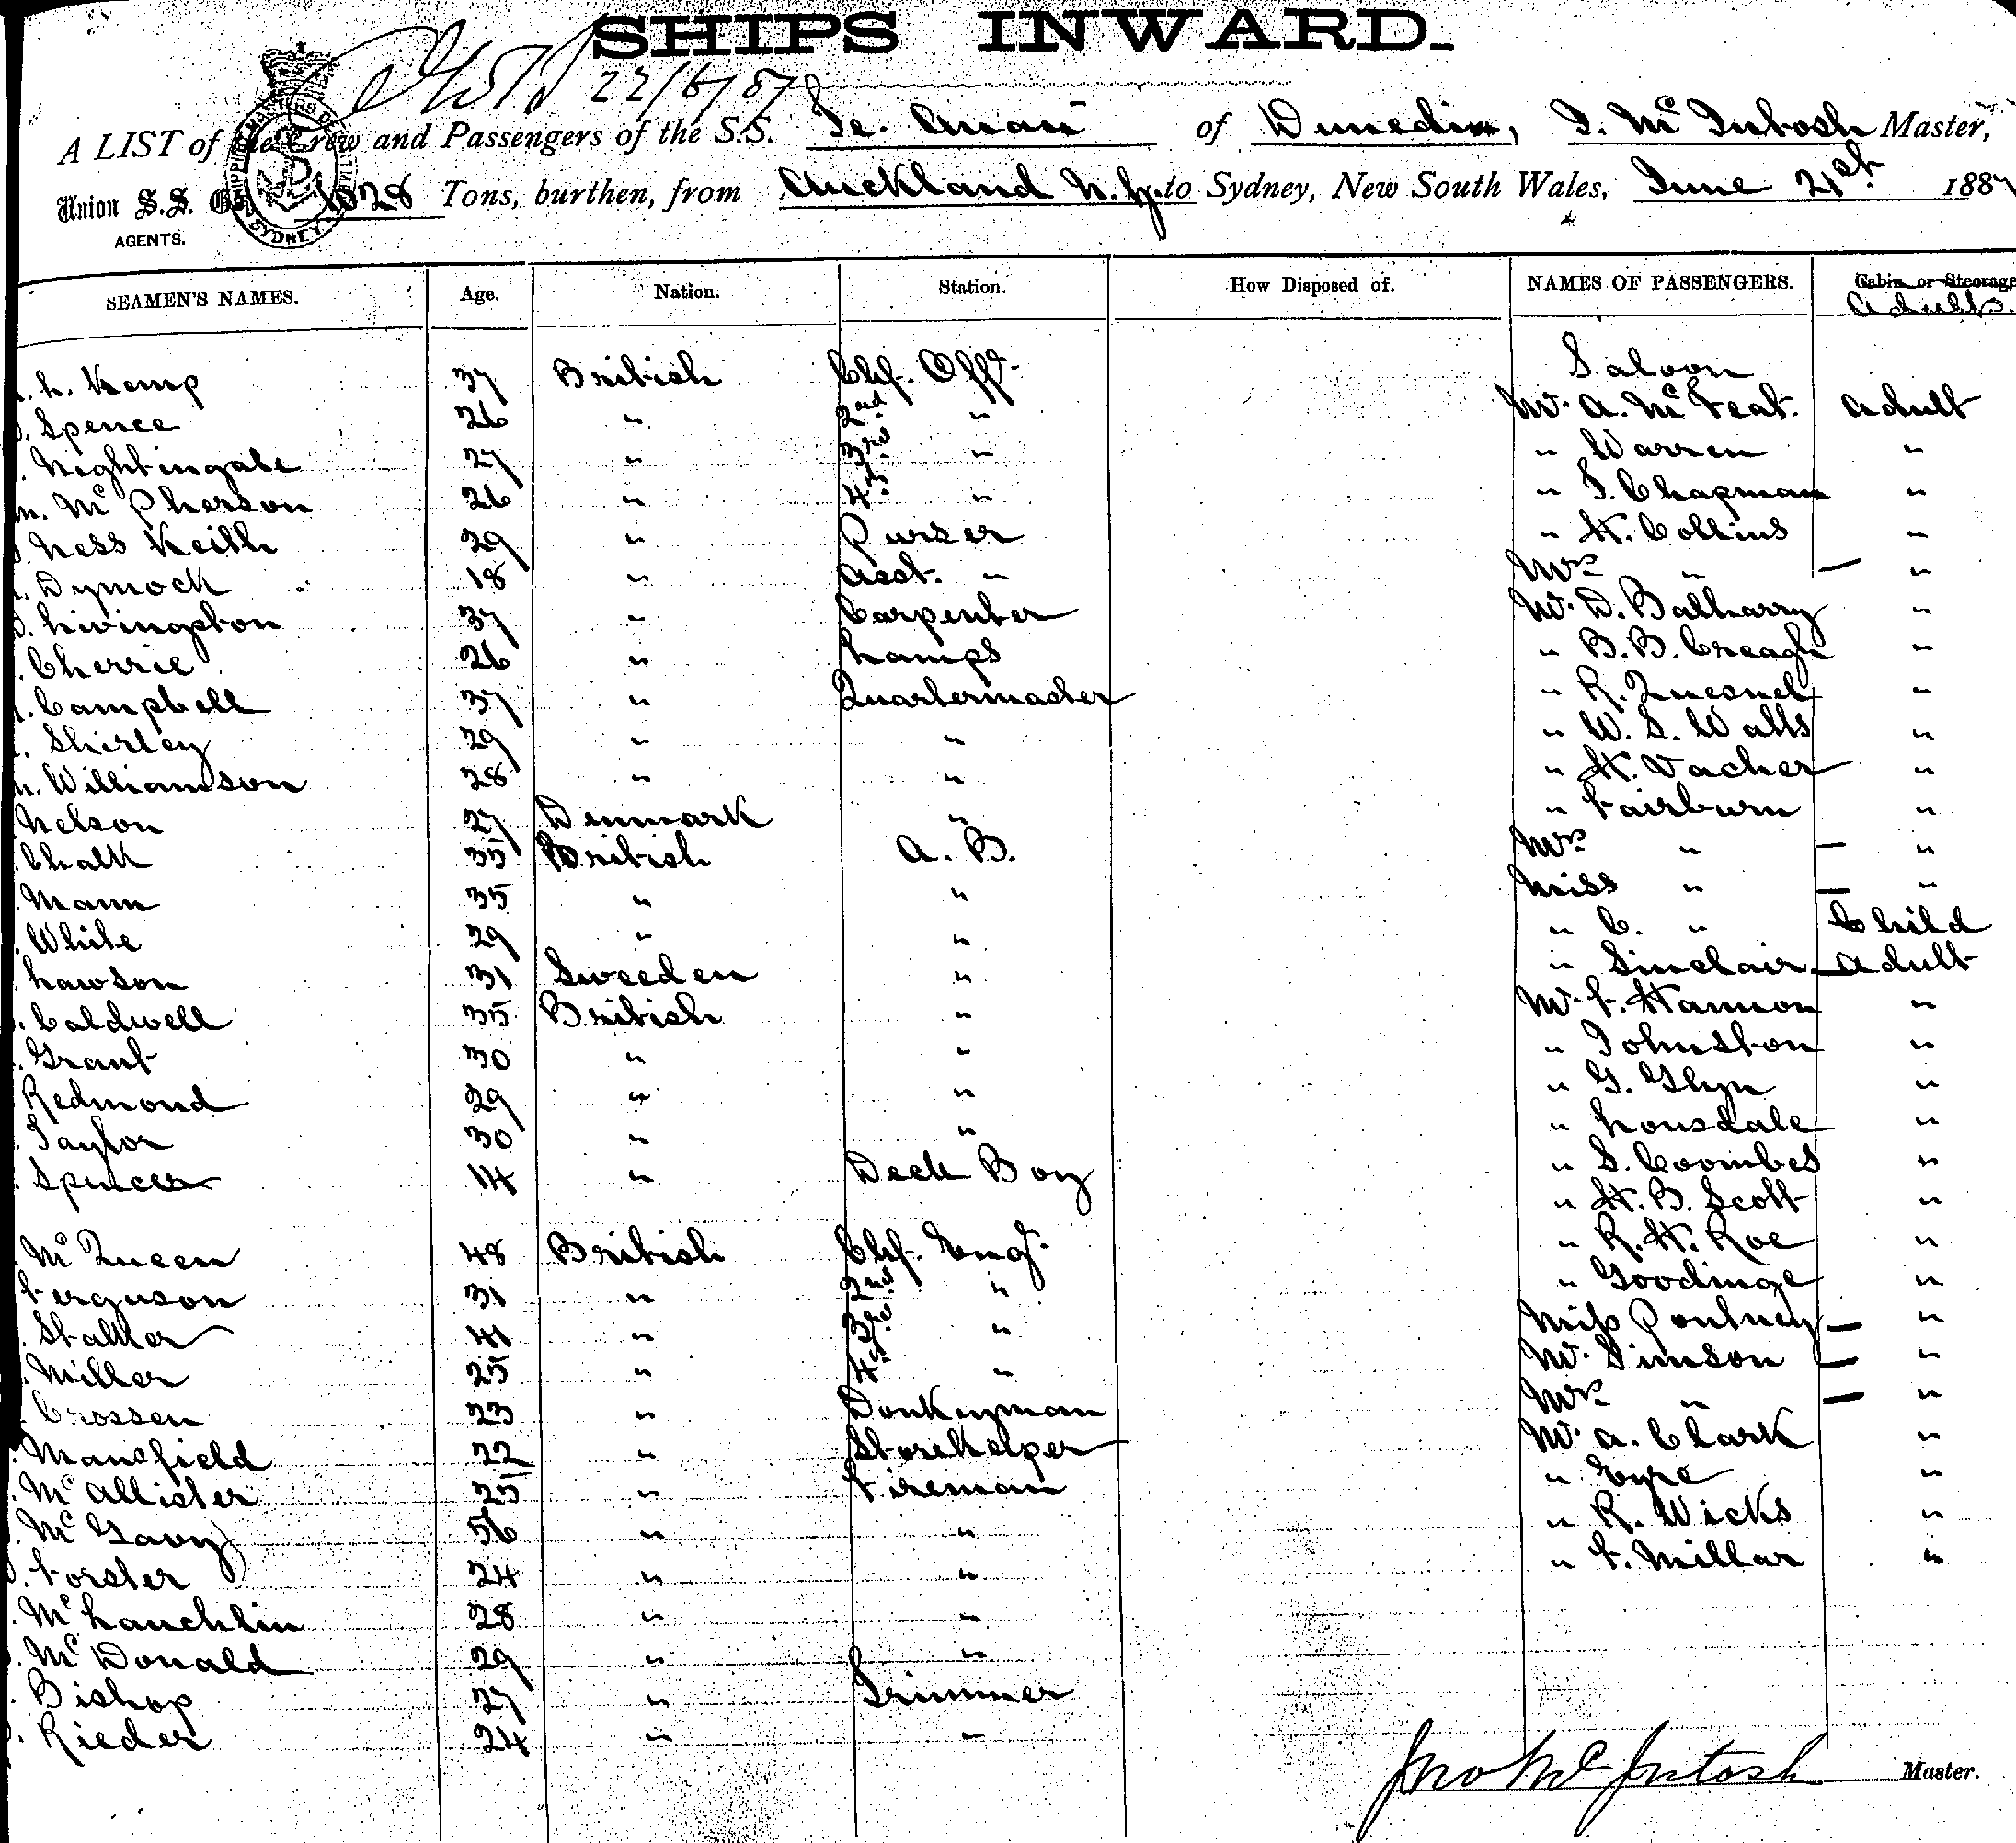 SHIPS INWARD.
22/6/87
A LIST of the Crew and Passengers of the S.S. Te. Anau of Dunedin, J. McIntosh Master,
Union S.S. Co. 1028 Tons, burthen, from Auckland N.Z. to Sydney, New South Wales, June 21st 1887
AGENTS.
SEAMEN'S NAMES. Age. Nation. Station. How Disposed of. NAMES OF PASSENGERS. Cabin or Steerage
Adults.
Saloon
h. Kemp 37 British Chf. Offr. Mr. A. McFeat. Adult
Spence 26 " 2nd " " Warren "
Nightingale 27 " 3rd " " J. Chapman "
McPherson 26 " 4th " " H. Collins "
Ness Keith 29 " Purser Mrs " — "
Dymock 18 " Asst. " Mr. D. Balharry "
Livingston 37 " Carpenter " B. B. Creagh "
Cherrie 26 " Lamps " R. Quesnel "
Campbell 37 " Quartermaster " W. S. Watts "
Shirley 29 " " " H. Vacher "
Williamson 28 " " " Fairburn "
Nelson 27 Denmark " Mrs " — "
Chalk 35 British A. B. Miss " — "
Mann 35 " " " C. " Child
White 29 " " " Sinclair — Adult
Lawson 31 Sweeden " Mr. F. Hannon "
Caldwell 35 British " " Johnston "
Grant 30 " " " G. Glyn "
Redmond 29 " " " Lonsdale "
Taylor 30 " " " S. Coombes "
Spencer 14 " Deck Boy " H. B. Scott "
McQueen 48 British Chf. Engr. " R. H. Roe "
Ferguson 31 " 2nd " " Goodinge "
Stalker 41 " 3rd " Miss Poutney — "
Miller 25 " 4th " Mr. Simson — "
Crossen 23 " Donkeyman Mrs " — "
Mansfield 22 " Storekeeper Mr. A. Clark "
McAllister 25 " Fireman " Eyre "
McGavy 56 " " " R. Wicks "
Forster 24 " " " F. Millar "
McLauchlin 28 " "
McDonald 29 " "
Bishop 27 " Trimmer
Rieder 24 " "
Jno McIntosh Master.